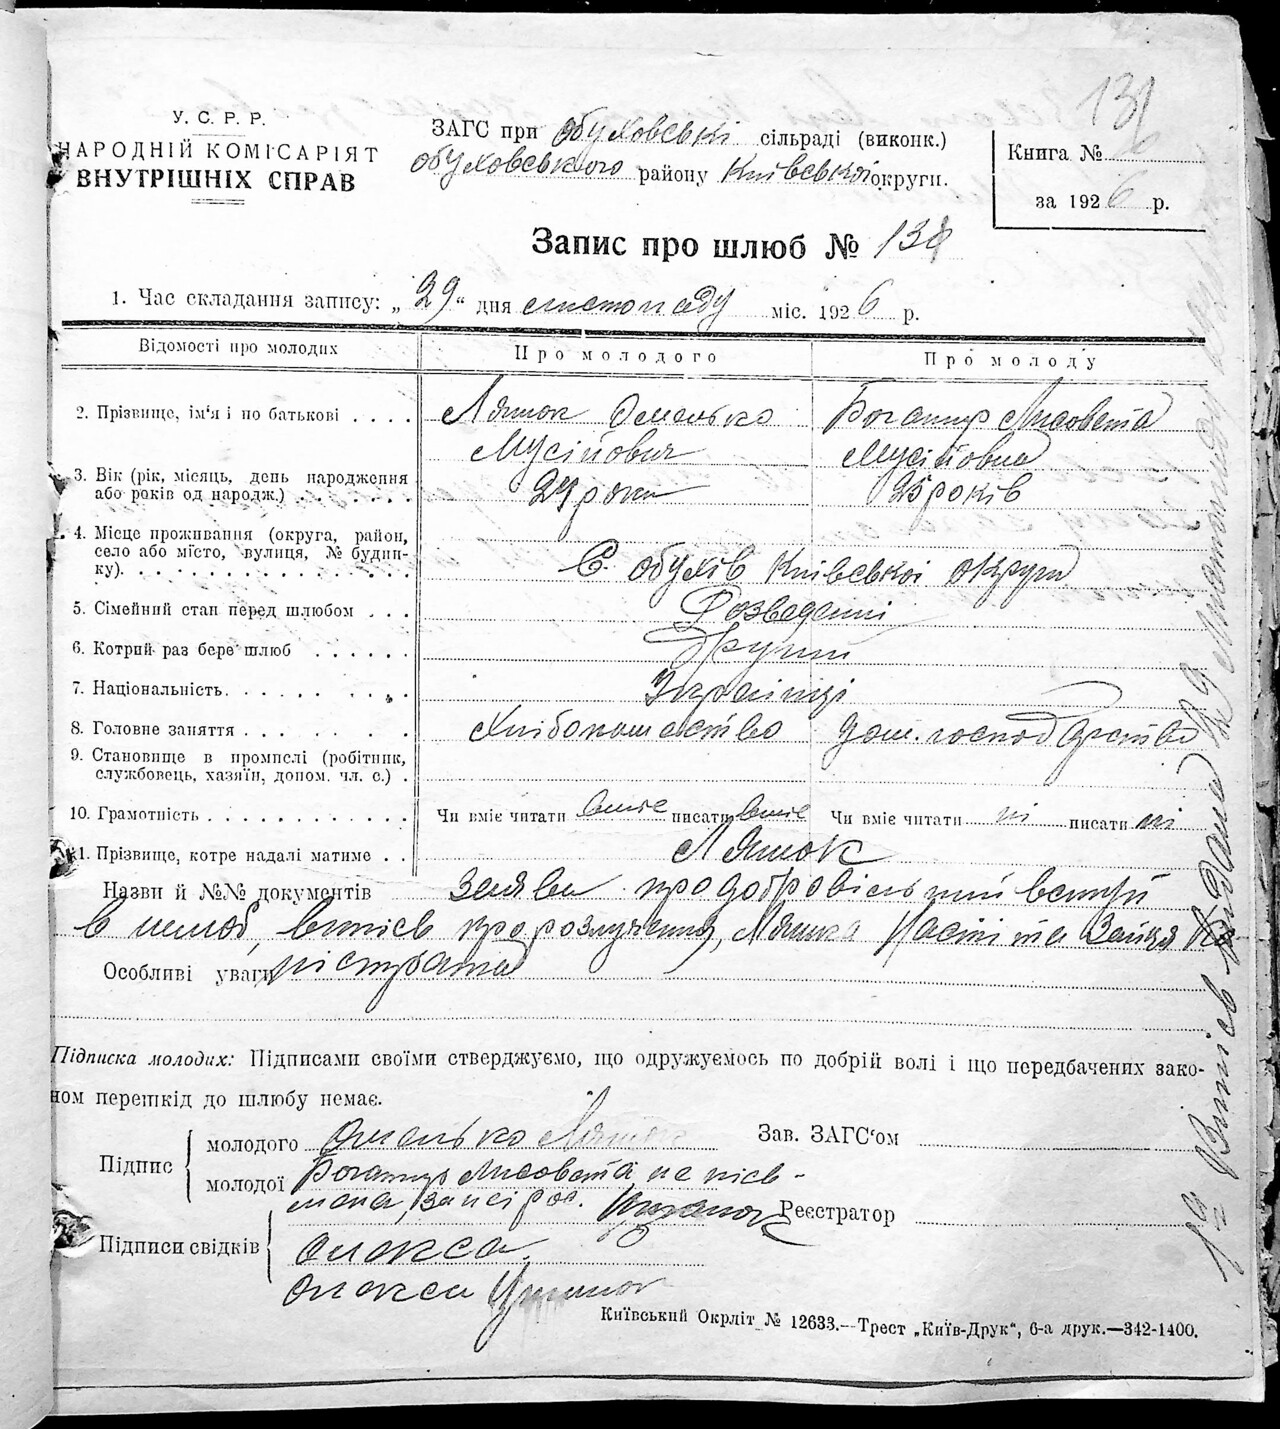 У. С. Р. Р.
НАРОДНІЙ КОМІСАРІЯТ
ВНУТРІШНІХ СПРАВ
ЗАГС при Обуховській сільраді (виконк.)
Обуховського району Київської округи.
Книга №
за 1926 р.
Запис про шлюб № 138
1. Час складання запису: „29“ дня листопаду міс. 1926 р.
Відомості про молодих Про молодого Про молоду
2. Прізвище, ім'я і по батькові . . . . Ляшок Омелько Богатир Лисовета
Мусійович Мусійовна
3. Вік (рік, місяць, день народження
або років од народж.) . . . . . . 24 роки 25 років
4. Місце проживання (округа, район,
село або місто, вулиця, № будин-
ку). . . . . . . . . . . . . . . С. Обухів Київської округи
5. Сімейний стан перед шлюбом . . . Розведенні
6. Котрий раз бере шлюб . . . . . . Другий
7. Національність. . . . . . . . . . Українці
8. Головне заняття . . . . . . . . Хлібопашество Дом. господарство
9. Становище в промислі (робітник,
службовець, хазяїн, допом. чл. с.) .
10. Грамотність . . . . . . . . . . . . Чи вміє читати вміє писати вміє Чи вміє читати ні писати ні
11. Прізвище, котре надалі матиме . . Ляшок
Назви й №№ документів заява про добровільний вступ
в шлюб, витяг про розлучення, Ляшка Насті та Зайця
Особливі уваги
Підписка молодих: Підписами своїми стверджуємо, що одружуємось по добрій волі і що передбачених зако-
ном перешкід до шлюбу немає.
Підпис
молодого Омелько Ляшок
Зав. ЗАГС'ом
молодої Богатир Лисовета не пись-
мена, за неї рос.
Реєстратор
Підписи свідків Олекса
Олекса
Київський Окрліт № 12633.—Трест „Київ-Друк“, 6-а друк.—342-1400.
29 листопаду